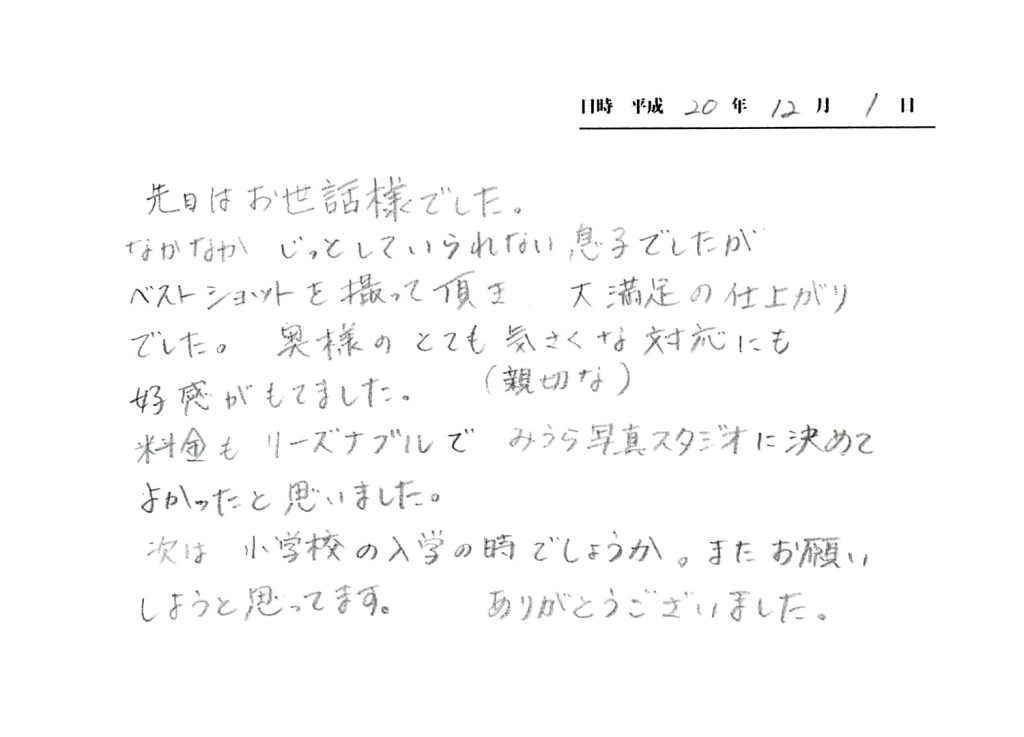 日時 平成 20 年 12 月 1 日
先日はお世話様でした。
なかなか じっとしていられない 息子でしたが
ベストショットを撮って頂き 大満足の仕上がり
でした。 奥様の とても 気さくな 対応にも
好感がもてました。 (親切な)
料金も リーズナブルで みうら写真スタジオに決めて
よかったと思いました。
次は 小学校の入学の時でしょうか。またお願い
しようと思ってます。 ありがとうございました。